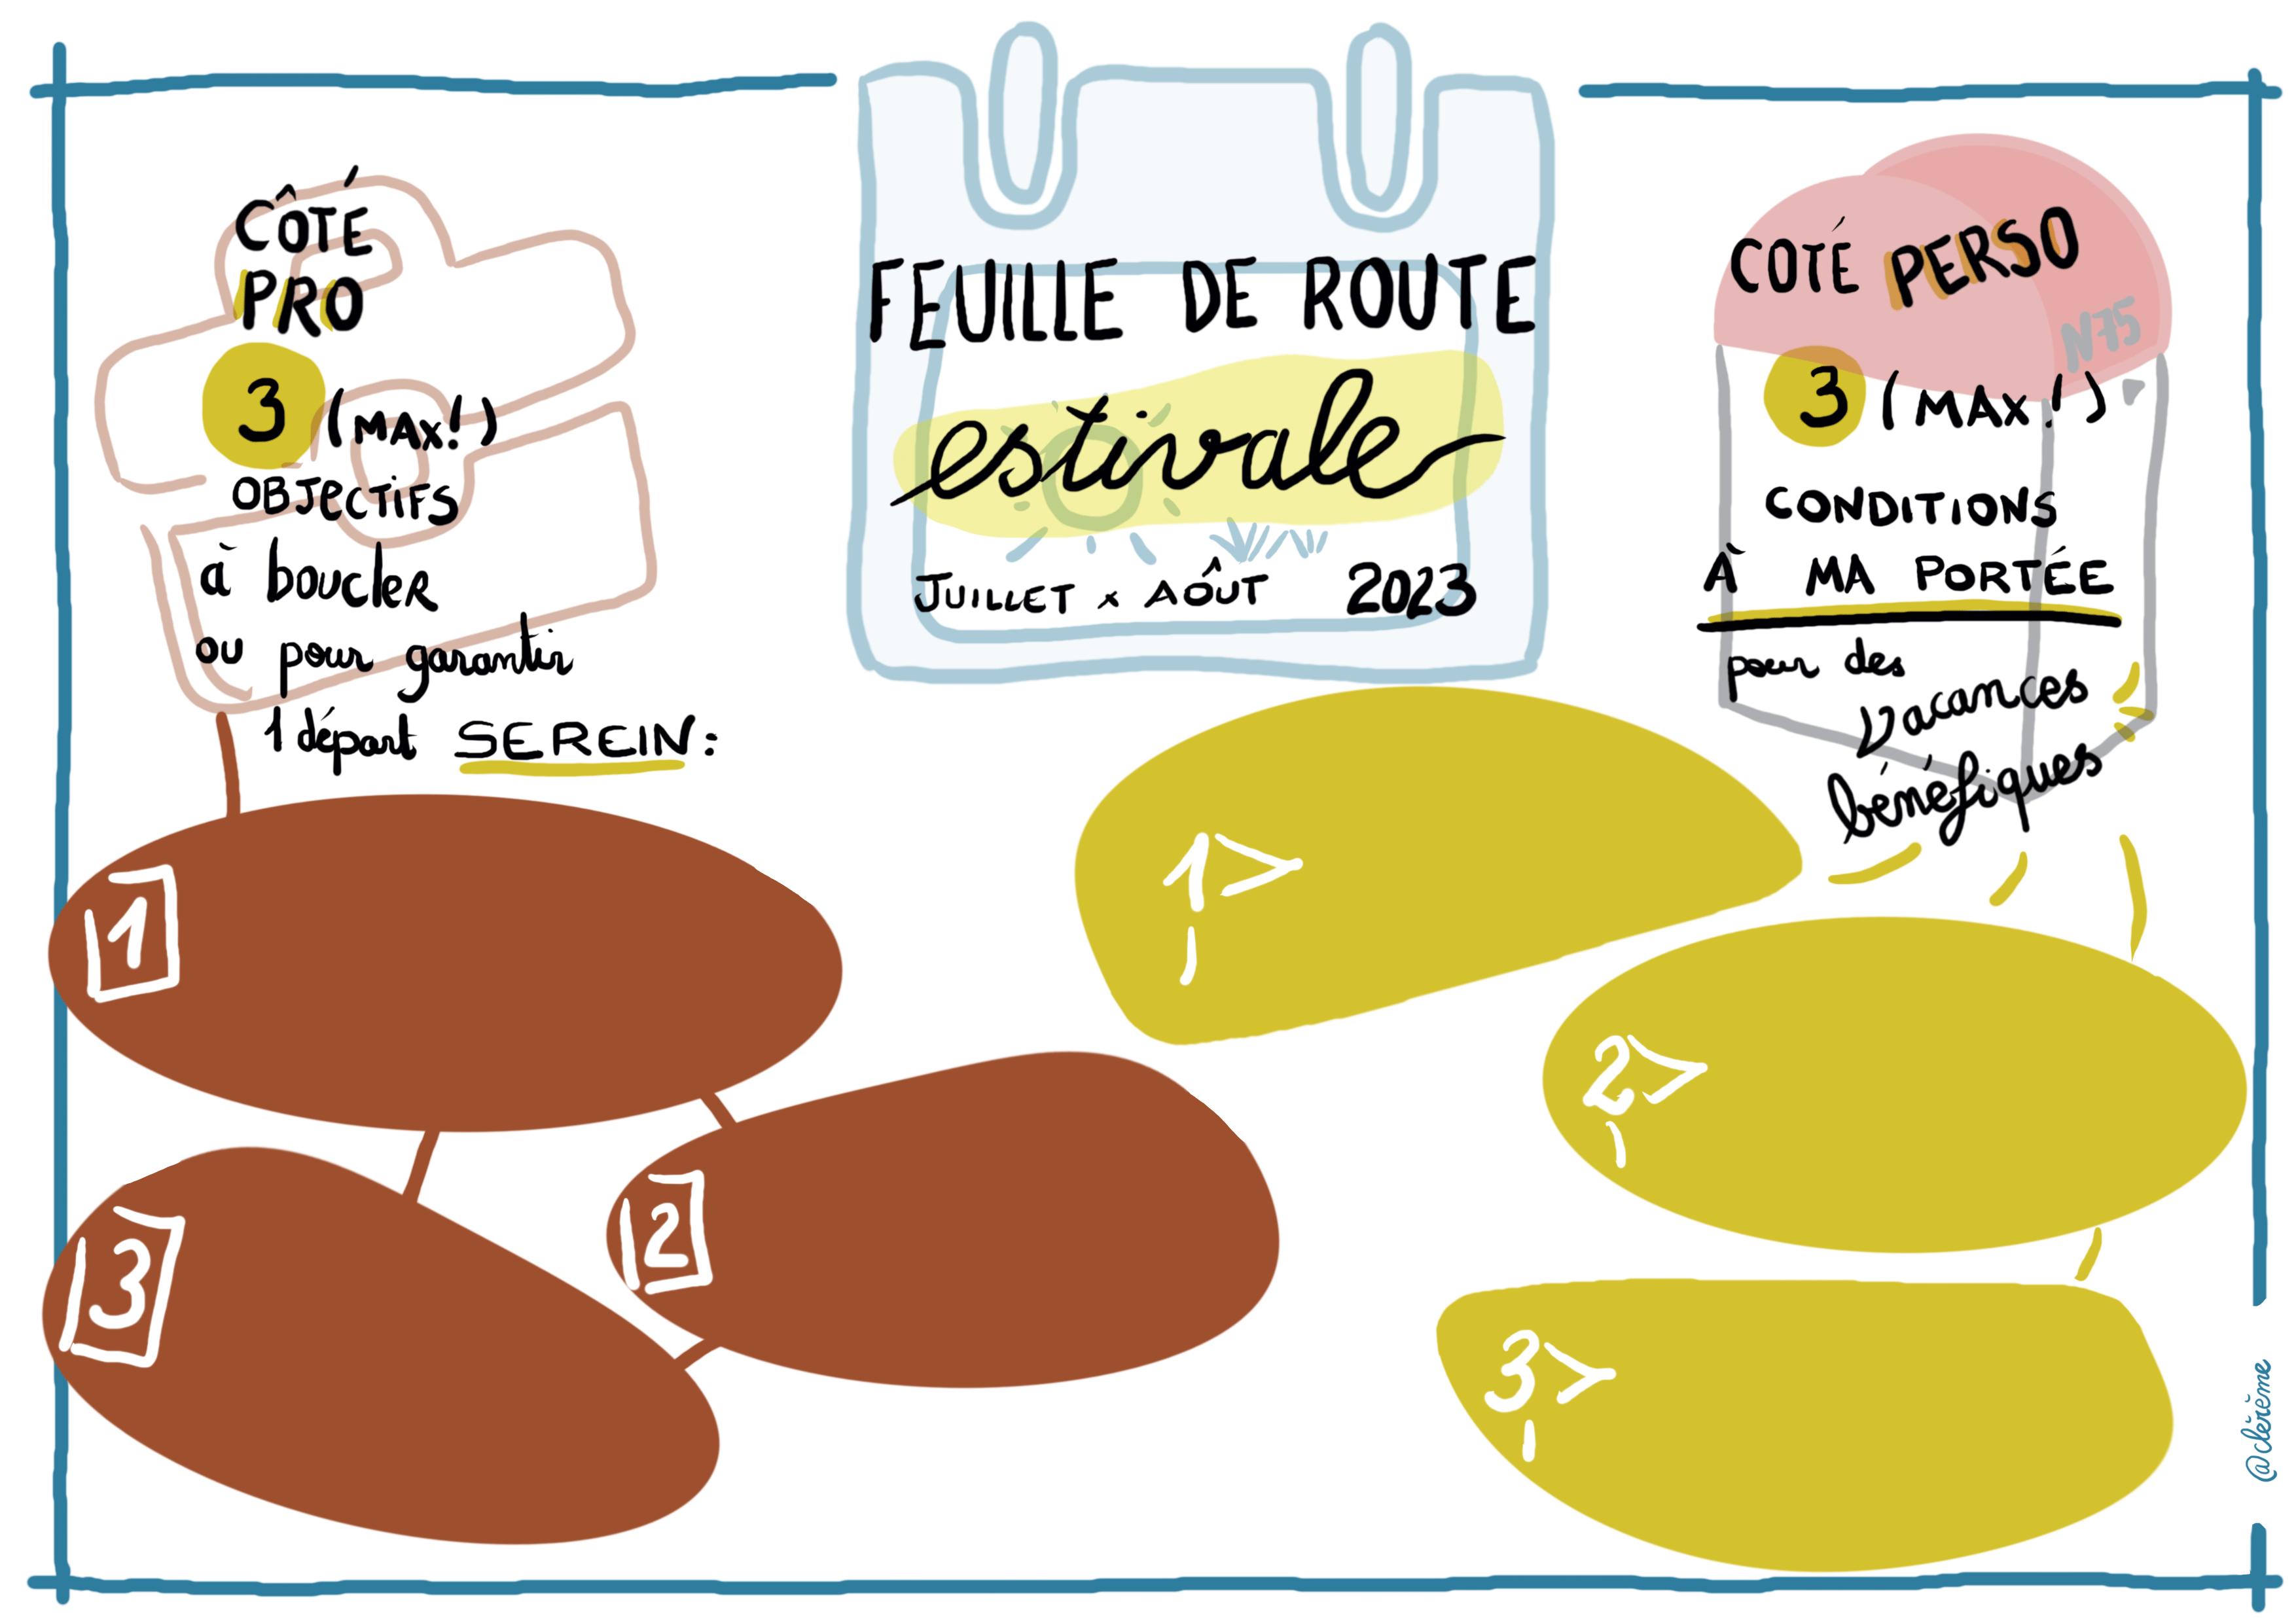 FEUILLE DE ROUTE
estivale
JUILLET x AOÛT 2023
CÔTÉ
PRO
3 (MAX!)
OBJECTIFS
à boucler
ou pour garantir
1 départ SEREIN:
1
2
3
COTÉ PERSO
N75
3 (MAX!)
CONDITIONS
À MA PORTÉE
pour des
vacances
bénéfiques
1>
2>
3>
@clérème